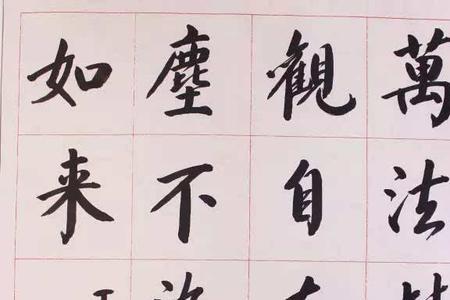 萬法
觀自
塵不
如来